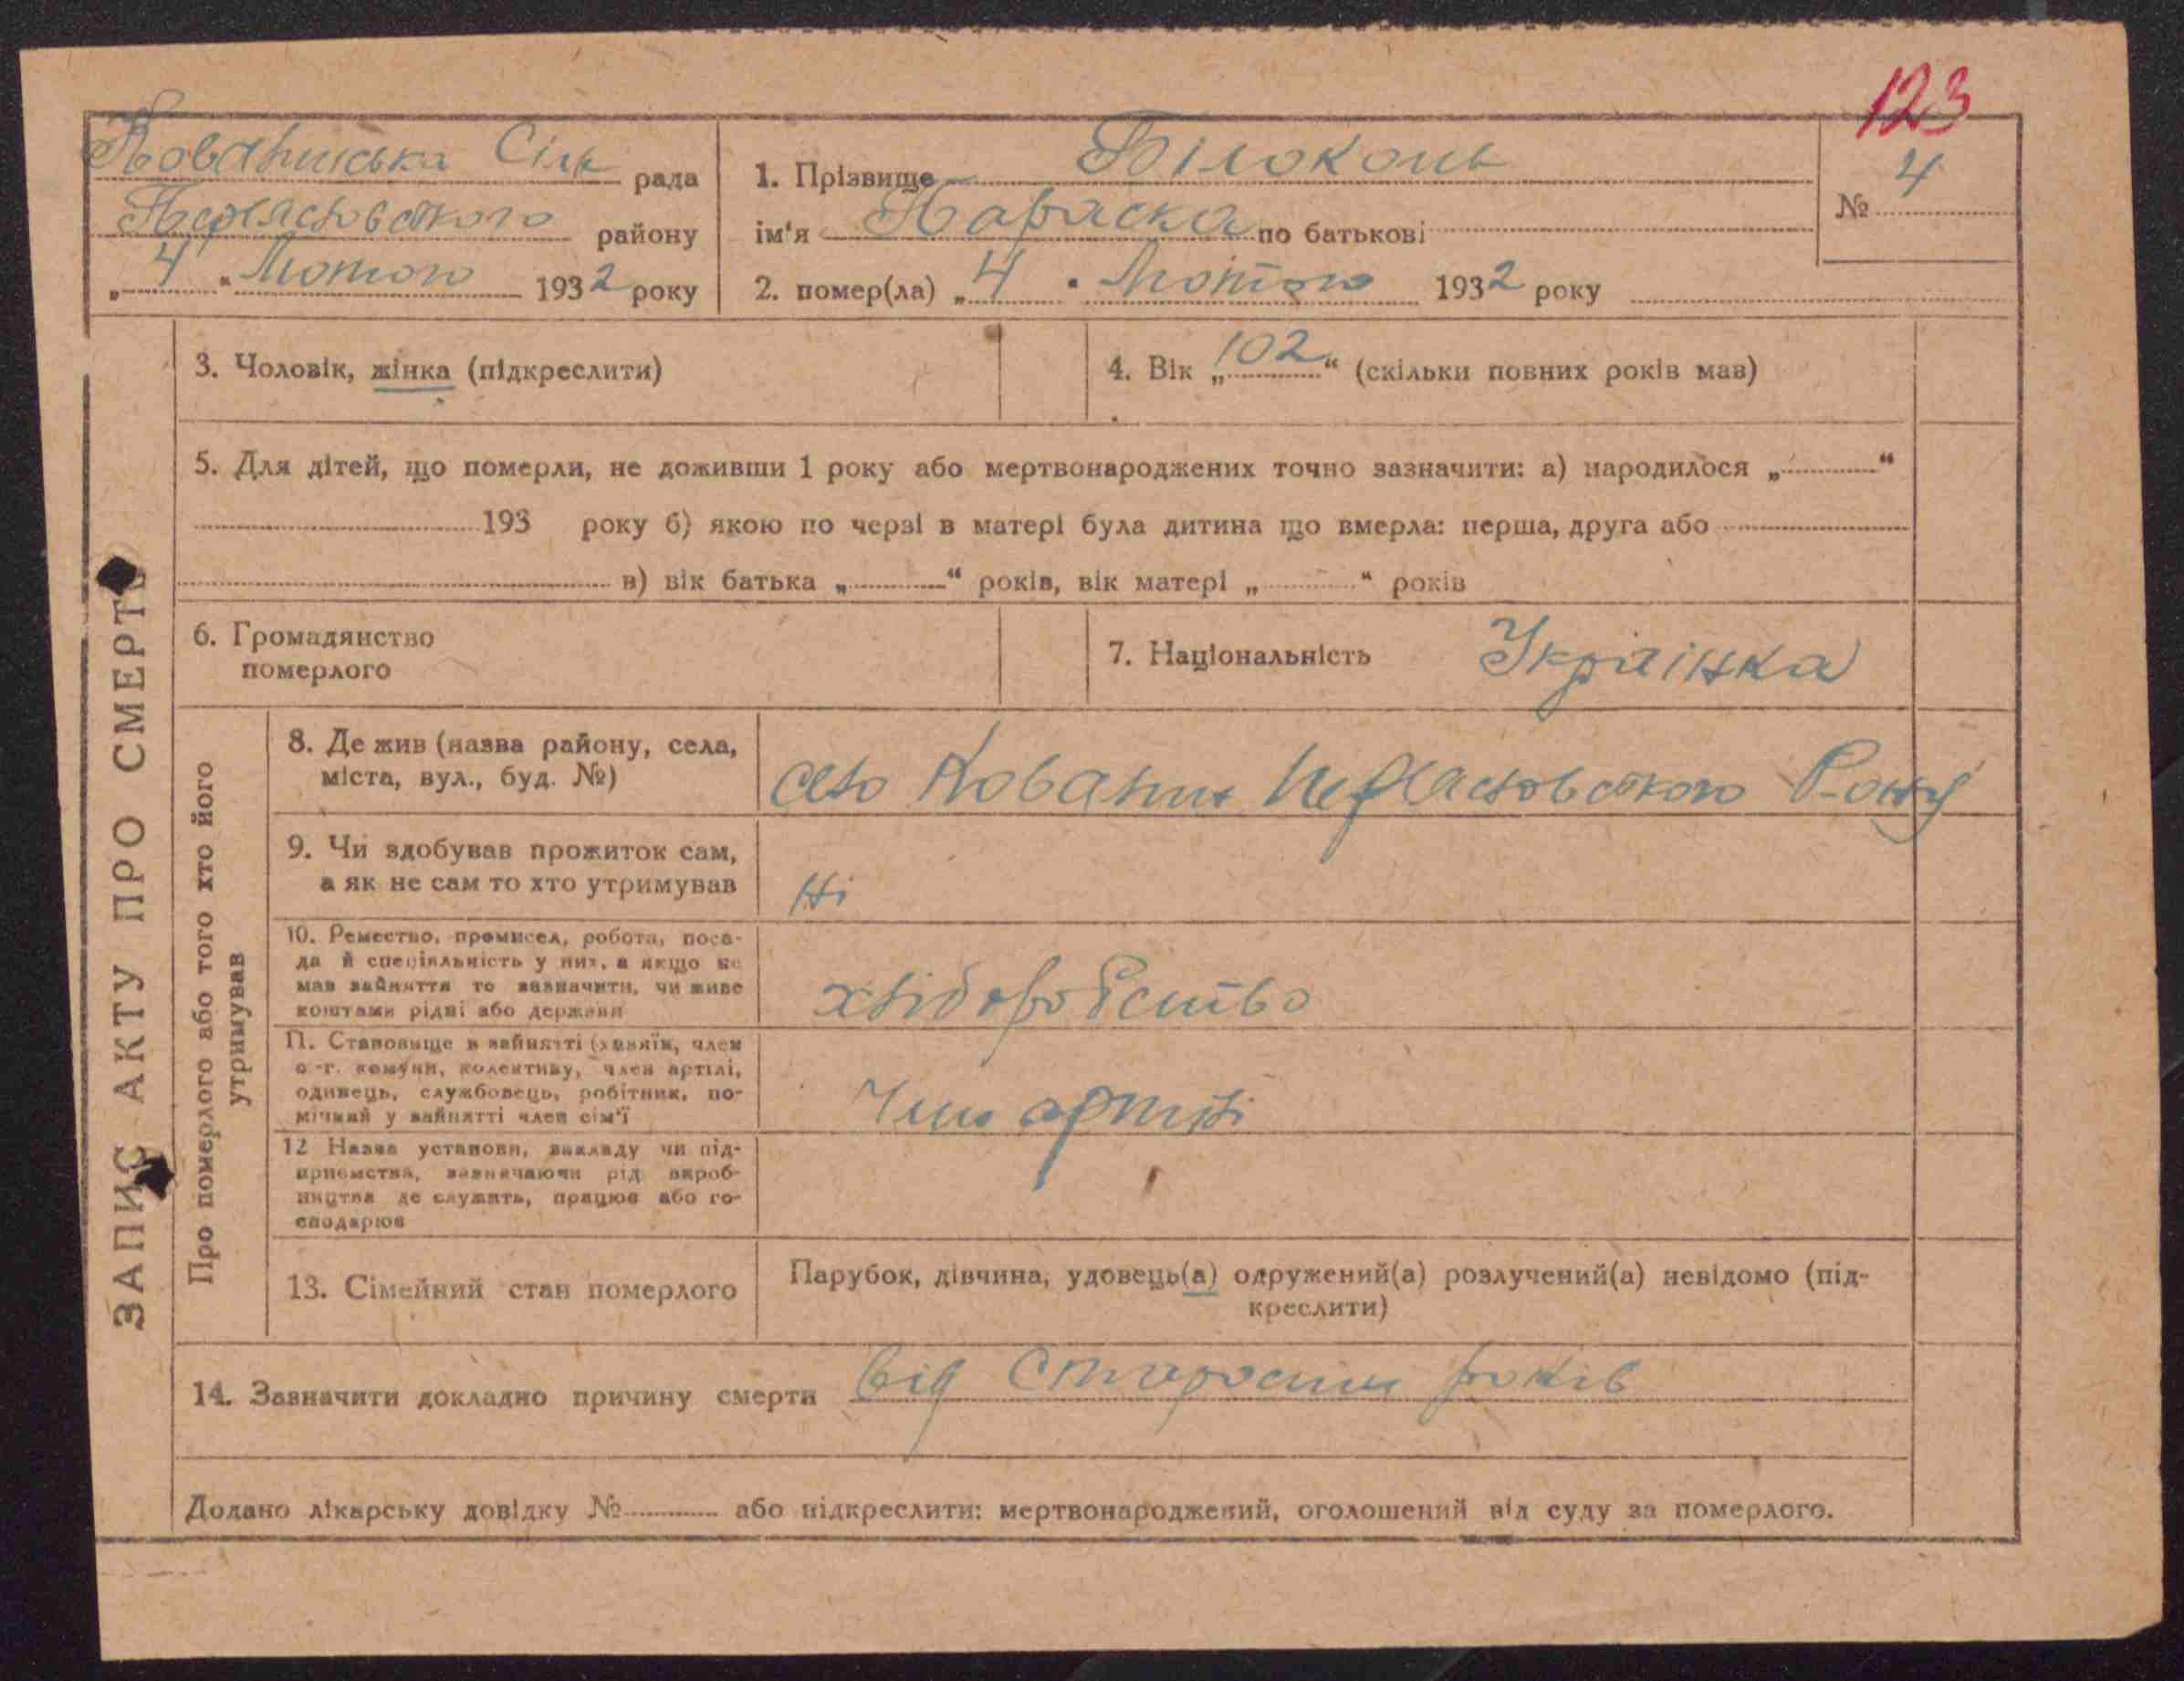 123
Кованська Сіль рада
Переяславського району
„ 4 “ Лютого 1932 року
1. Прізвище Білоконь
ім'я Параска по батькові
2. помер(ла) „ 4 “ Лютого 1932 року
№ 4
ЗАПИС АКТУ ПРО СМЕРТЬ
3. Чоловік, жінка (підкреслити)
4. Вік „ 102 “ (скільки повних років мав)
5. Для дітей, що померли, не доживши 1 року або мертвонароджених точно зазначити: а) народилося „ “
193 року б) якою по черзі в матері була дитина що вмерла: перша, друга або
в) вік батька „ “ років, вік матері „ “ років
6. Громадянство
померлого
7. Національність Українка
Про померлого або того хто його
утримував
8. Де жив (назва району, села,
міста, вул., буд. №)
село Ковалин Переяславського Р-ону
9. Чи здобував прожиток сам,
а як не сам то хто утримував
Ні
10. Ремество, промисел, робота, поса-
да й спеціяльність у них, а якщо не
мав зайняття то зазначити, чи живе
коштами рідні або держави
хліборобство
П. Становище в зайнятті (хазяїн, член
с.-г. комуни, колективу, член артілі,
одинець, службовець, робітник, по-
мічний у зайнятті член сім'ї
Член артілі
12 Назва установи, закладу чи під-
приємства, зазначаючи рід вироб-
ництва де служить, працює або го-
сподарює
13. Сімейний стан померлого
Парубок, дівчина, удовець(а) одружений(а) розлучений(а) невідомо (під-
креслити)
14. Зазначити докладно причину смерти від старости років
Додано лікарську довідку № або підкреслити: мертвонароджений, оголошений від суду за померлого.